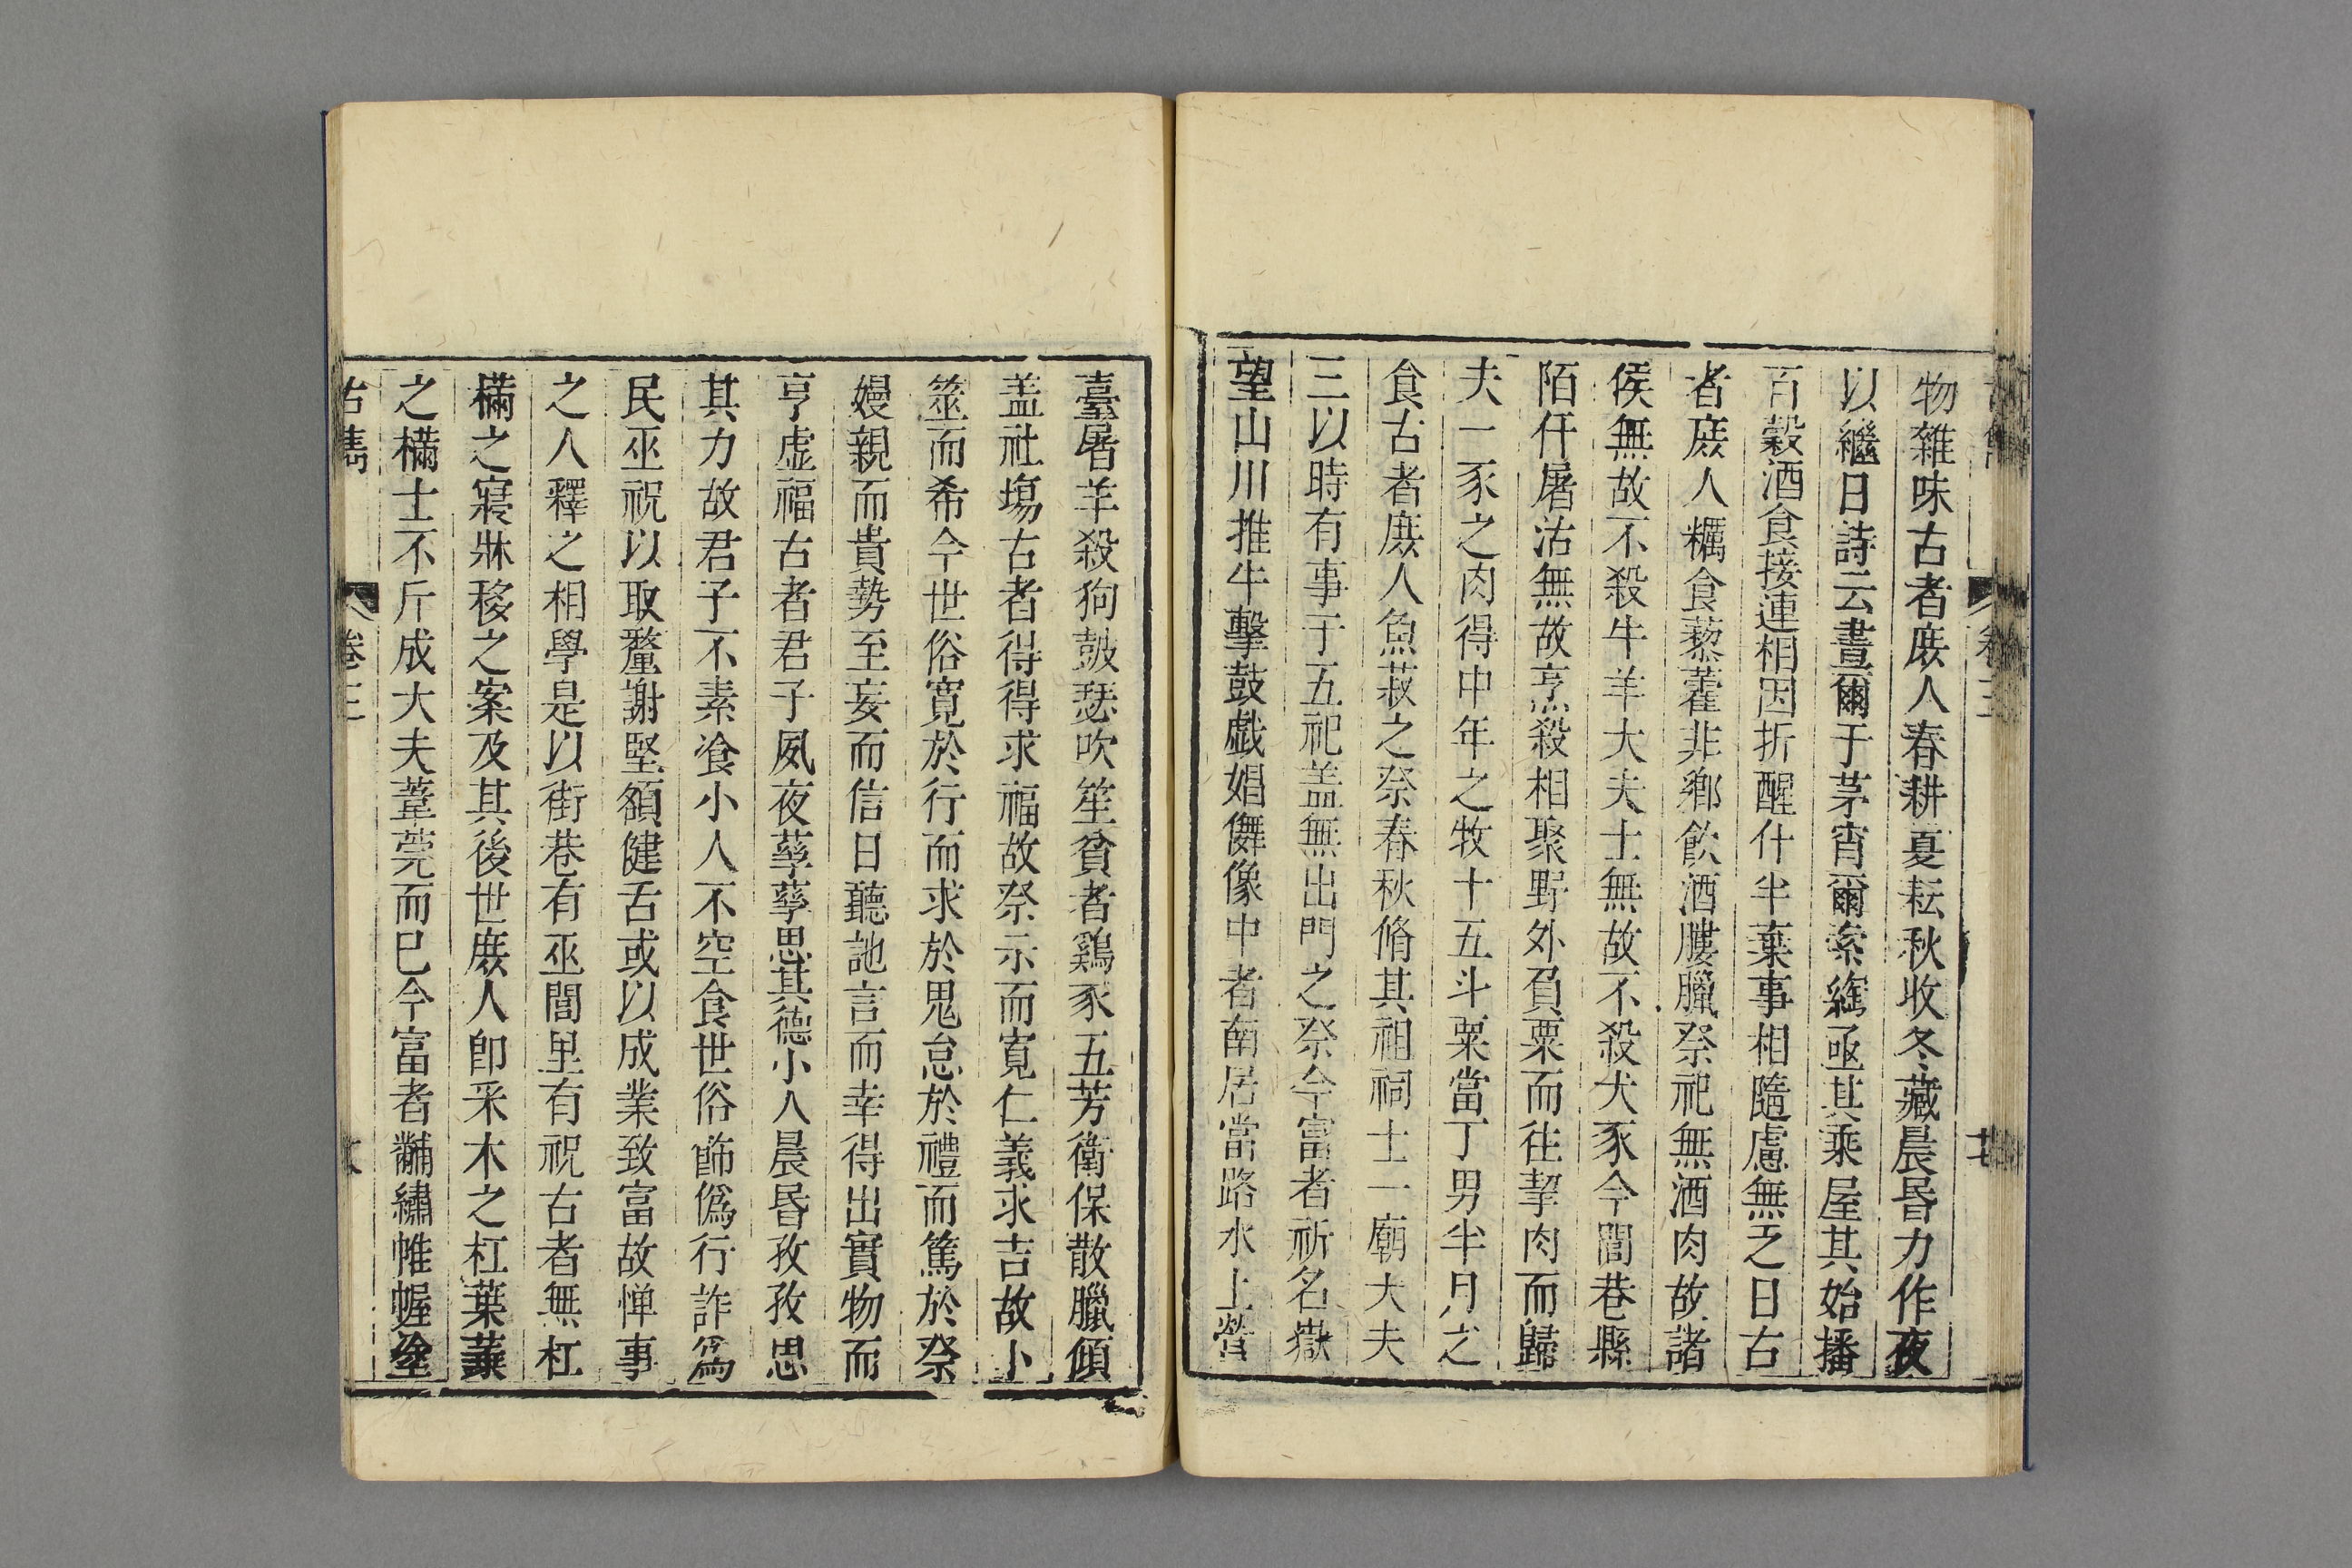 物雜味古者庻人春耕夏耘秋收冬藏晨昏力作夜
以繼日詩云晝爾于茅宵爾索綯亟其乘屋其始播
百穀酒食接連相因折酲什半棄事相隨慮無乏日古
者庻人糲食藜藿非鄉飲酒膢臘祭祀無酒肉故諸
侯無故不殺牛羊大夫士無故不殺犬豕今閭巷縣
陌仟屠沽無故亨殺相聚野外負粟而往挈肉而歸
夫一豕之肉得中年之收十五斗粟當丁男半月之
食古者庻人魚菽之祭春秋脩其祖祠士一廟大夫
三以時有事于五祀盖無出門之祭今富者祈名嶽
望山川推牛擊鼓戲娼儛像中者南居當路水上營
臺屠羊殺狗鼓瑟吹笙貧者鷄豕五芳衛保散臘傾
盖社塲古者得得求福故祭示而寛仁義求吉故卜
筮而希今世俗寛於行而求於鬼怠於禮而篤於祭
嫚親而貴勢至妄而信日聽訑言而幸得出實物而
亨虚福古者君子夙夜孳孳思其德小人晨昏孜孜思
其力故君子不素飡小人不空食世俗飾僞行詐爲
民巫祝以取釐謝堅額健舌或以成業致富故憚事
之人釋之相學是以街巷有巫閭里有祝古者無杠
樠之寢牀移之案及其後世庻人卽采木之杠葉蓁
之樠士不斤成大夫葦莞而已今富者黼繡帷幄塗
古雋
卷三